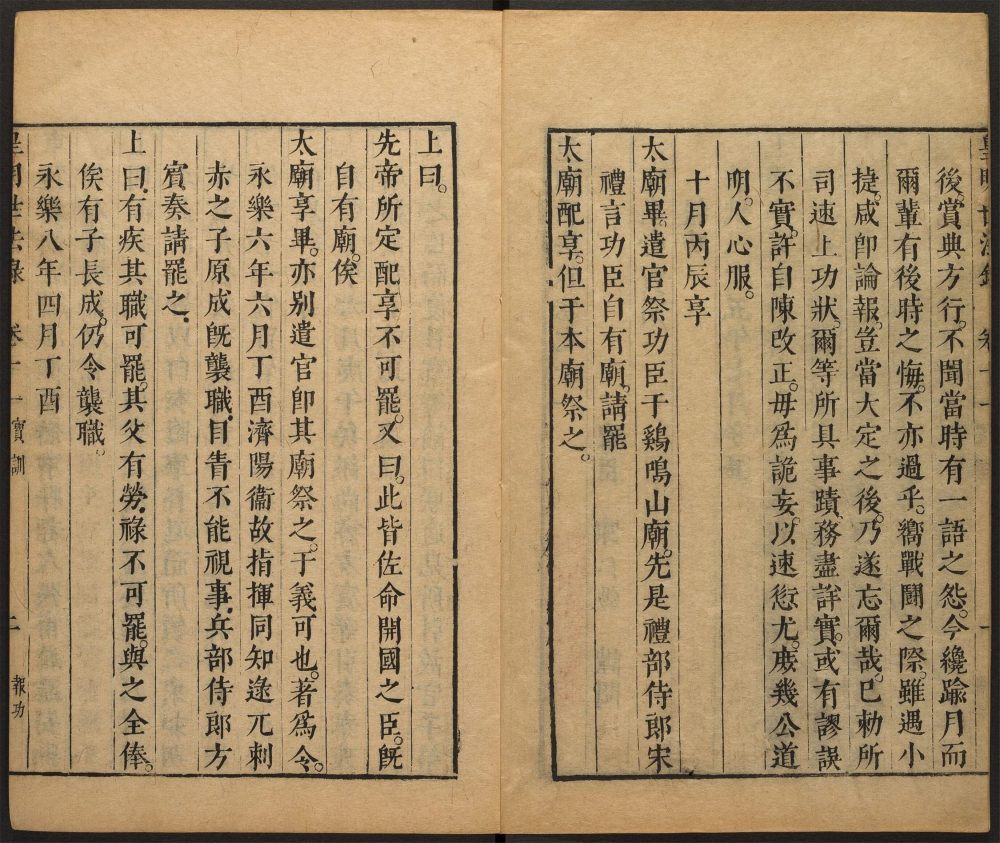 皇明世法錄 卷十一
後賞典方行。不聞當時有一語之怨。今纔踰月而
爾輩有後時之悔。不亦過乎。嚮戰鬬之際。雖遇小
捷。咸卽論報。豈當大定之後。乃遂忘爾哉。已勑所
司速上功狀。爾等所具事蹟。務盡詳實。或有謬誤
不實。許自陳改正。毋爲詭妄。以速愆尤。庻幾公道
明。人心服。
十月丙辰享
太廟畢。遣官祭功臣于鷄鳴山廟。先是禮部侍郎宋
禮言功臣自有廟。請罷
太廟配享。但于本廟祭之。
上曰。
先帝所定配享不可罷。又曰。此皆佐命開國之臣。旣
自有廟。俟
太廟享畢。亦别遣官卽其廟祭之。于義可也。著爲令。
永樂六年六月丁酉濟陽衞故指揮同知逯兀刺
赤之子原成旣襲職。目眚不能視事。兵部侍郎方
賓奏請罷之。
上曰。有疾其職可罷。其父有勞。祿不可罷。與之全俸。
俟有子長成。仍令襲職。
永樂八年四月丁酉
皇明世法錄 卷十一 寶訓 二 報功